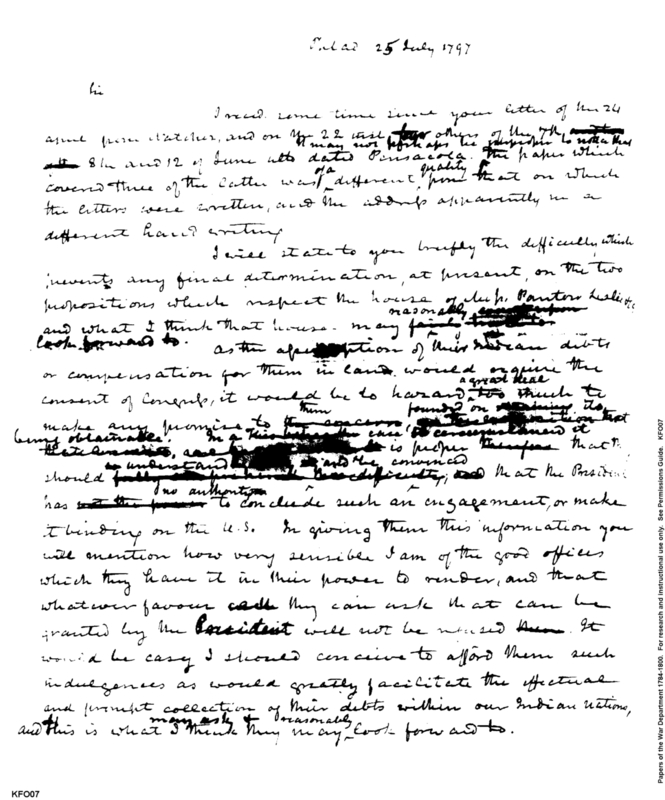 Philad 25 July 1797
Sir
I recd. some time since your letter of the 24
april from Natchez, and on the 22 inst, others of the 7th,
It may not perhaps be improper to notice that
8th and 12 of June all dated Pensacola. the paper which
of a quality
covered three of the latter was different from that on which
the letters were written, and the address apparently in a
different hand writing
I will state to you briefly the difficulty, which
prevents any final determination, at present, on the two
propositions which respect the house of Messrs. Panton Leslie & Co
reasonably
and what I think that house may
look forward to. As the assumption of their Indian debts
or compensation for them in land would require the
a great deal
consent of Congress, it would be to hazard too much to
them founded on its
make any promise to
being obtainable. In a case it
is proper that they
to understand and be convinced
should that the President
no authority
has to conclude such an engagement, or make
it binding on the U.S. In giving them this information you
will mention how very sensible I am of the good offices
which they have it in their power to render, and that
whatever favour they can ask that can be
granted by the President will not be refused. It
would be easy I should conceive to afford them such
indulgences as would greatly facilitate the effectual
and prompt collection of their debts within our Indian nations,
may ask & reasonably
and this is what I think they may look forward to.
KFO07
Papers of the War Department 1784-1800. For research and instructional use only. See Permissions Guide. KFO07